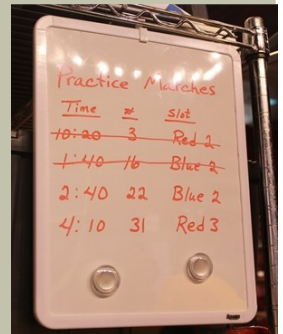 Practice Matches
Time # Slot
10:20 3 Red 2
1:40 16 Blue 2
2:40 22 Blue 2
4:10 31 Red 3